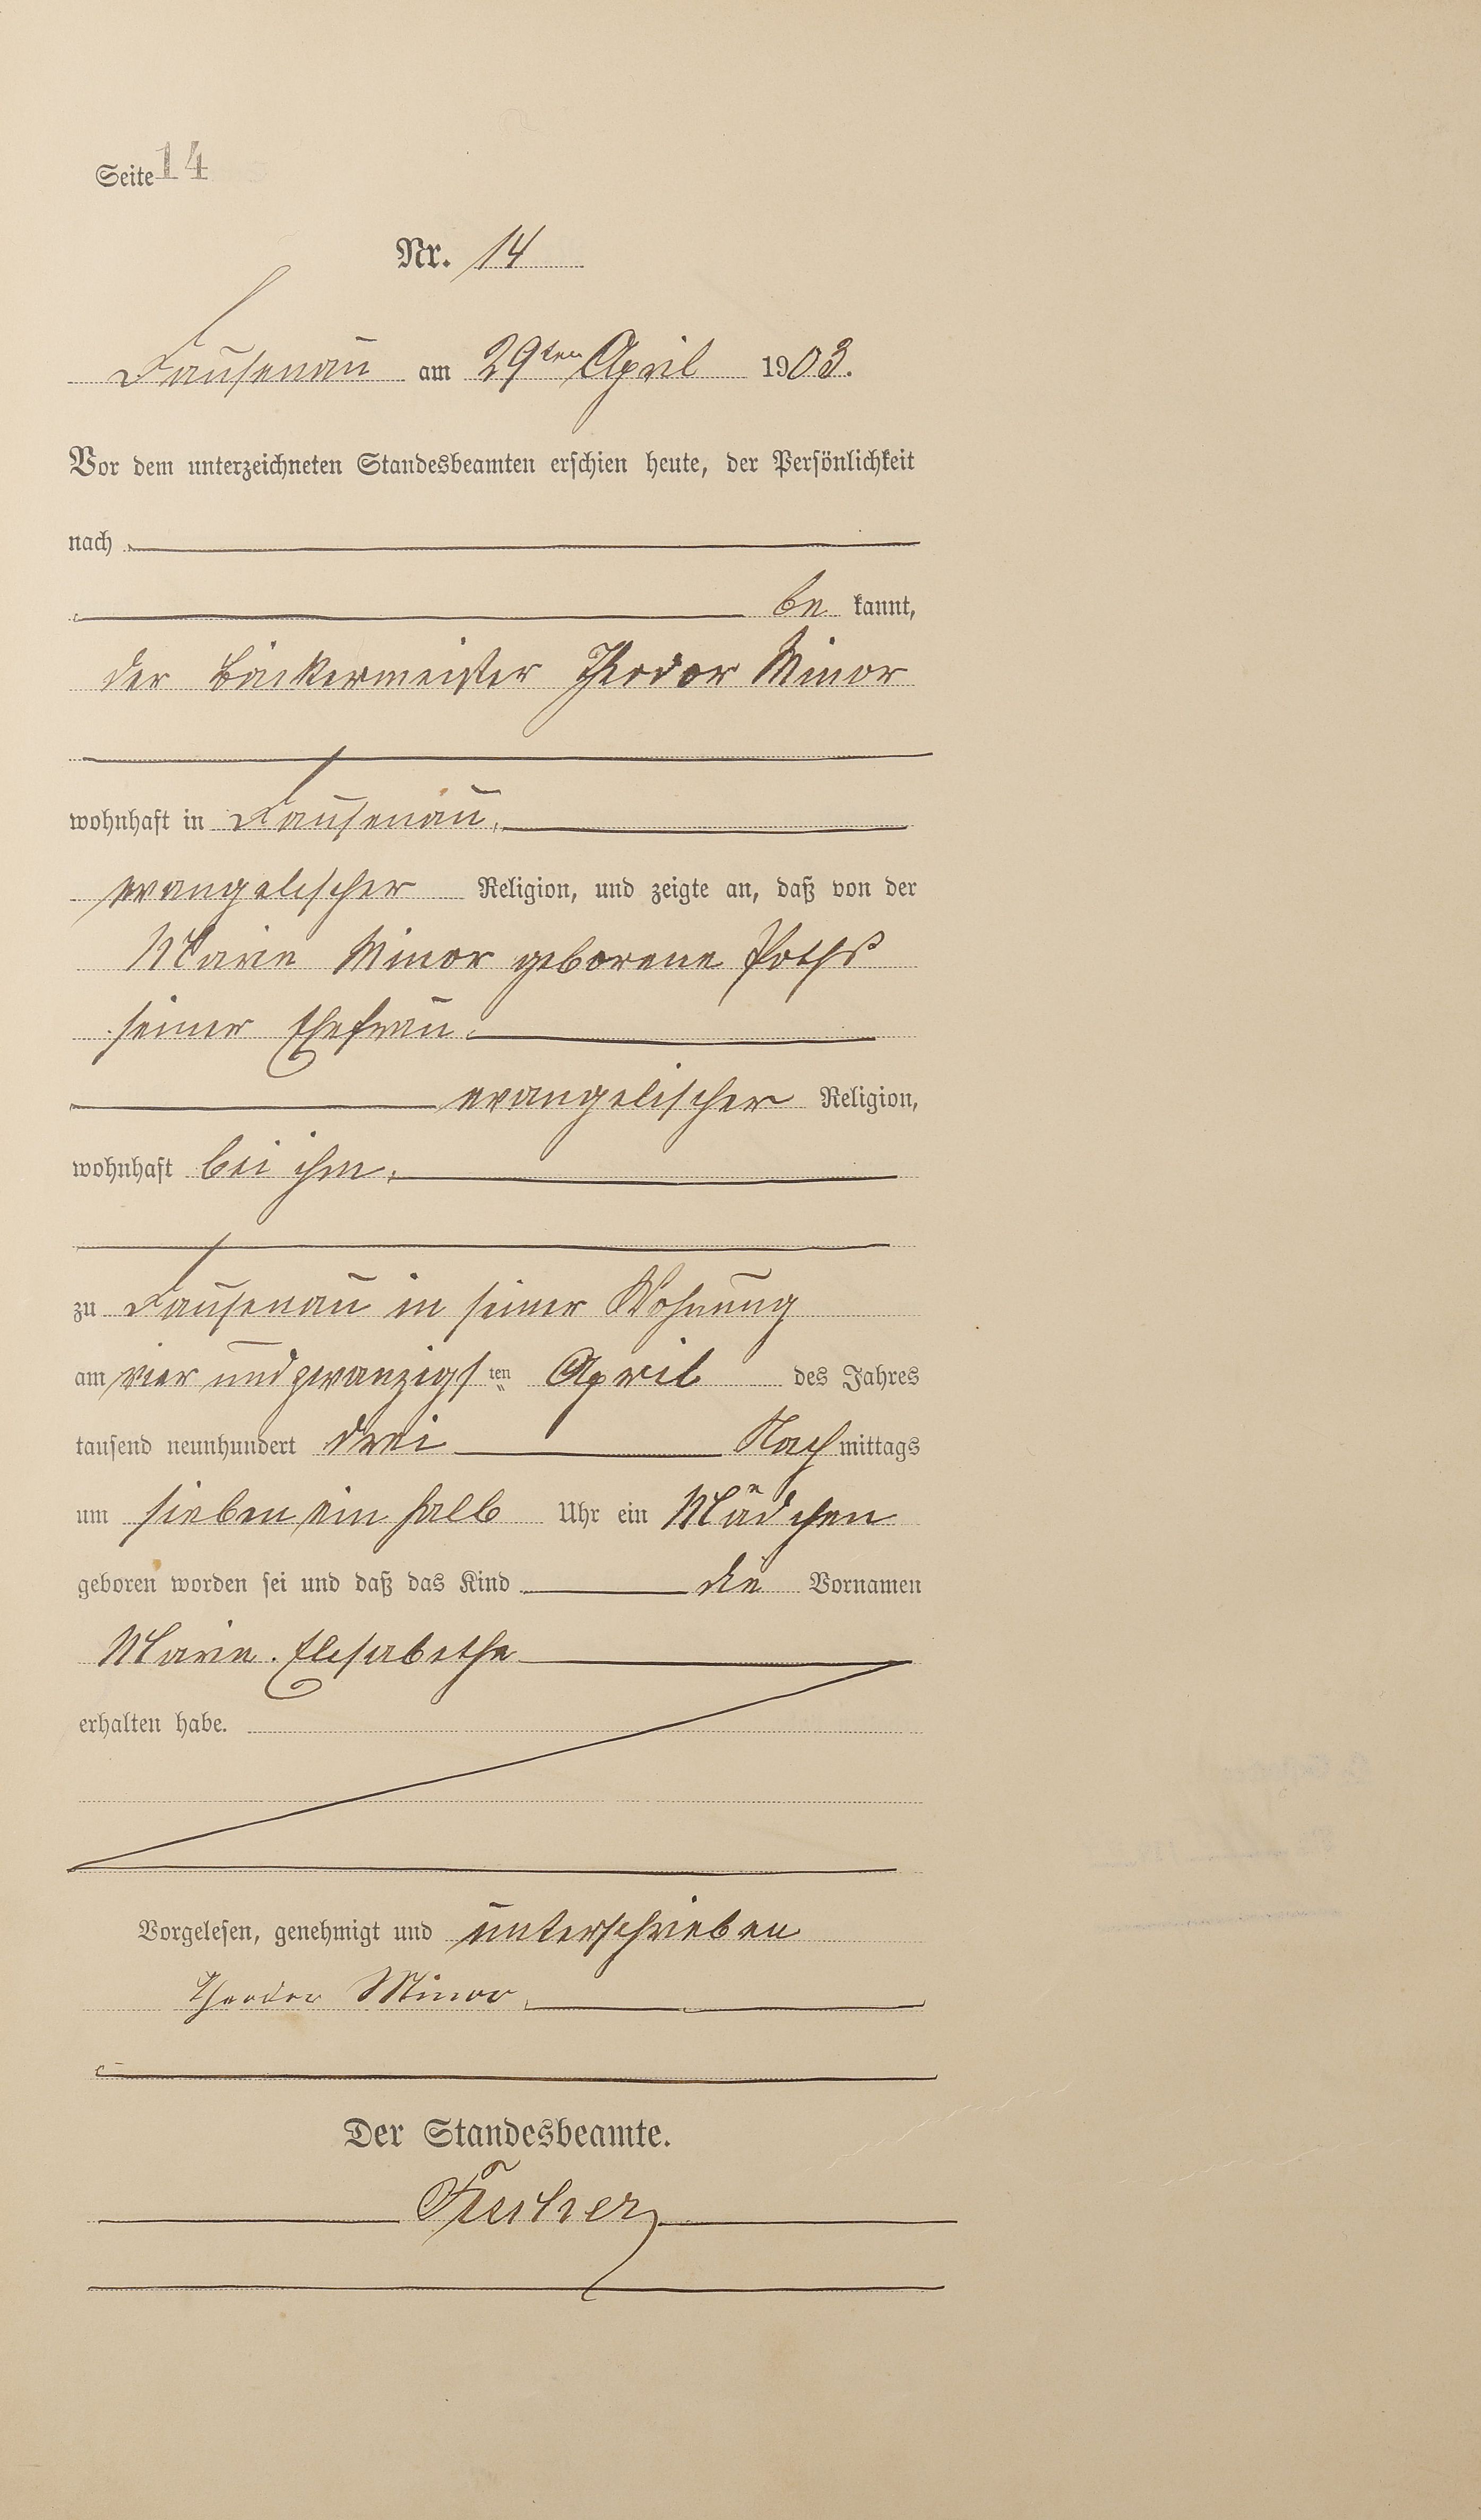 Seite 14
Nr. 14
Dausenau am 29ten April 1903.
Vor dem unterzeichneten Standesbeamten erschien heute, der Persönlichkeit
nach
be kannt,
der Bäckermeister Theodor Minor
wohnhaft in Dausenau,
evangelischer Religion, und zeigte an, daß von der
Marie Minor geborene Poths
seiner Ehefrau,
evangelischer Religion,
wohnhaft bei ihm,
zu Dausenau in seiner Wohnung
am vier und zwanzigsten April des Jahres
tausend neunhundert drei Nachmittags
um sieben ein halb Uhr ein Mädchen
geboren worden sei und daß das Kind die Vornamen
Marie. Elisabethe
erhalten habe.
Vorgelesen, genehmigt und unterschrieben
Theodor Minor,
Der Standesbeamte.